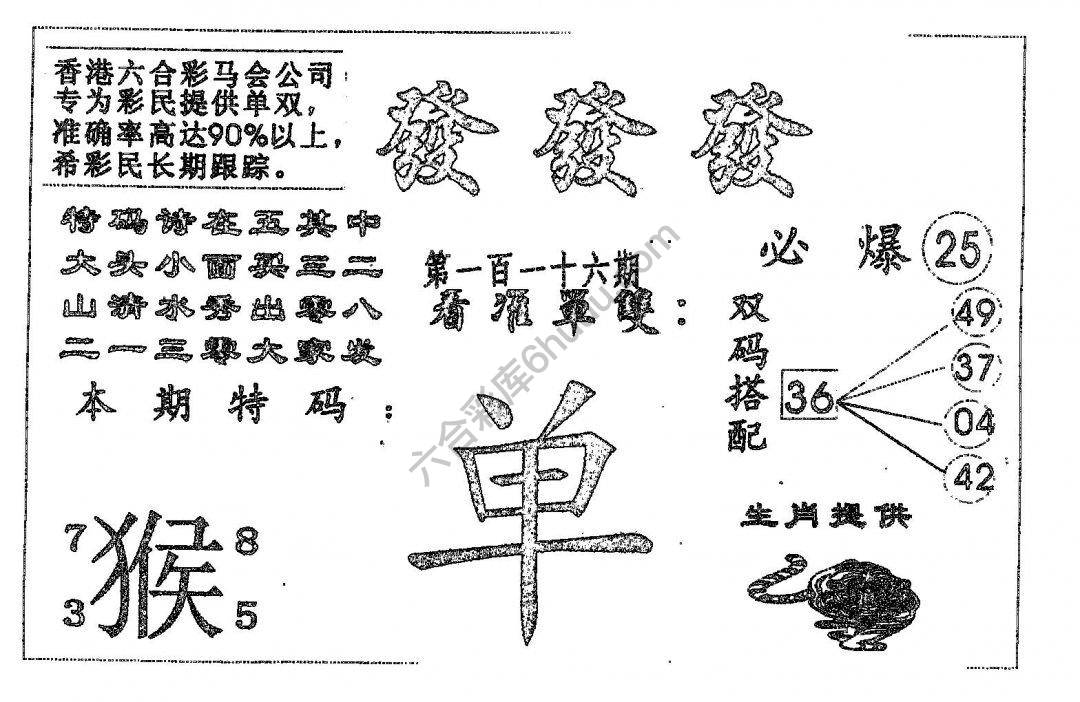 香港六合彩马会公司
专为彩民提供单双，
准确率高达90%以上，
希彩民长期跟踪。
發 發 發
特码诗在五其中
大头小面买三二
山清水秀出零八
二一三零大家发
本期特码：
第一百一十六期
看准單雙：
单
必爆 25
双码搭配
36
49
37
04
42
生肖提供
猴
7 8
3 5
六合彩库6huhu.com